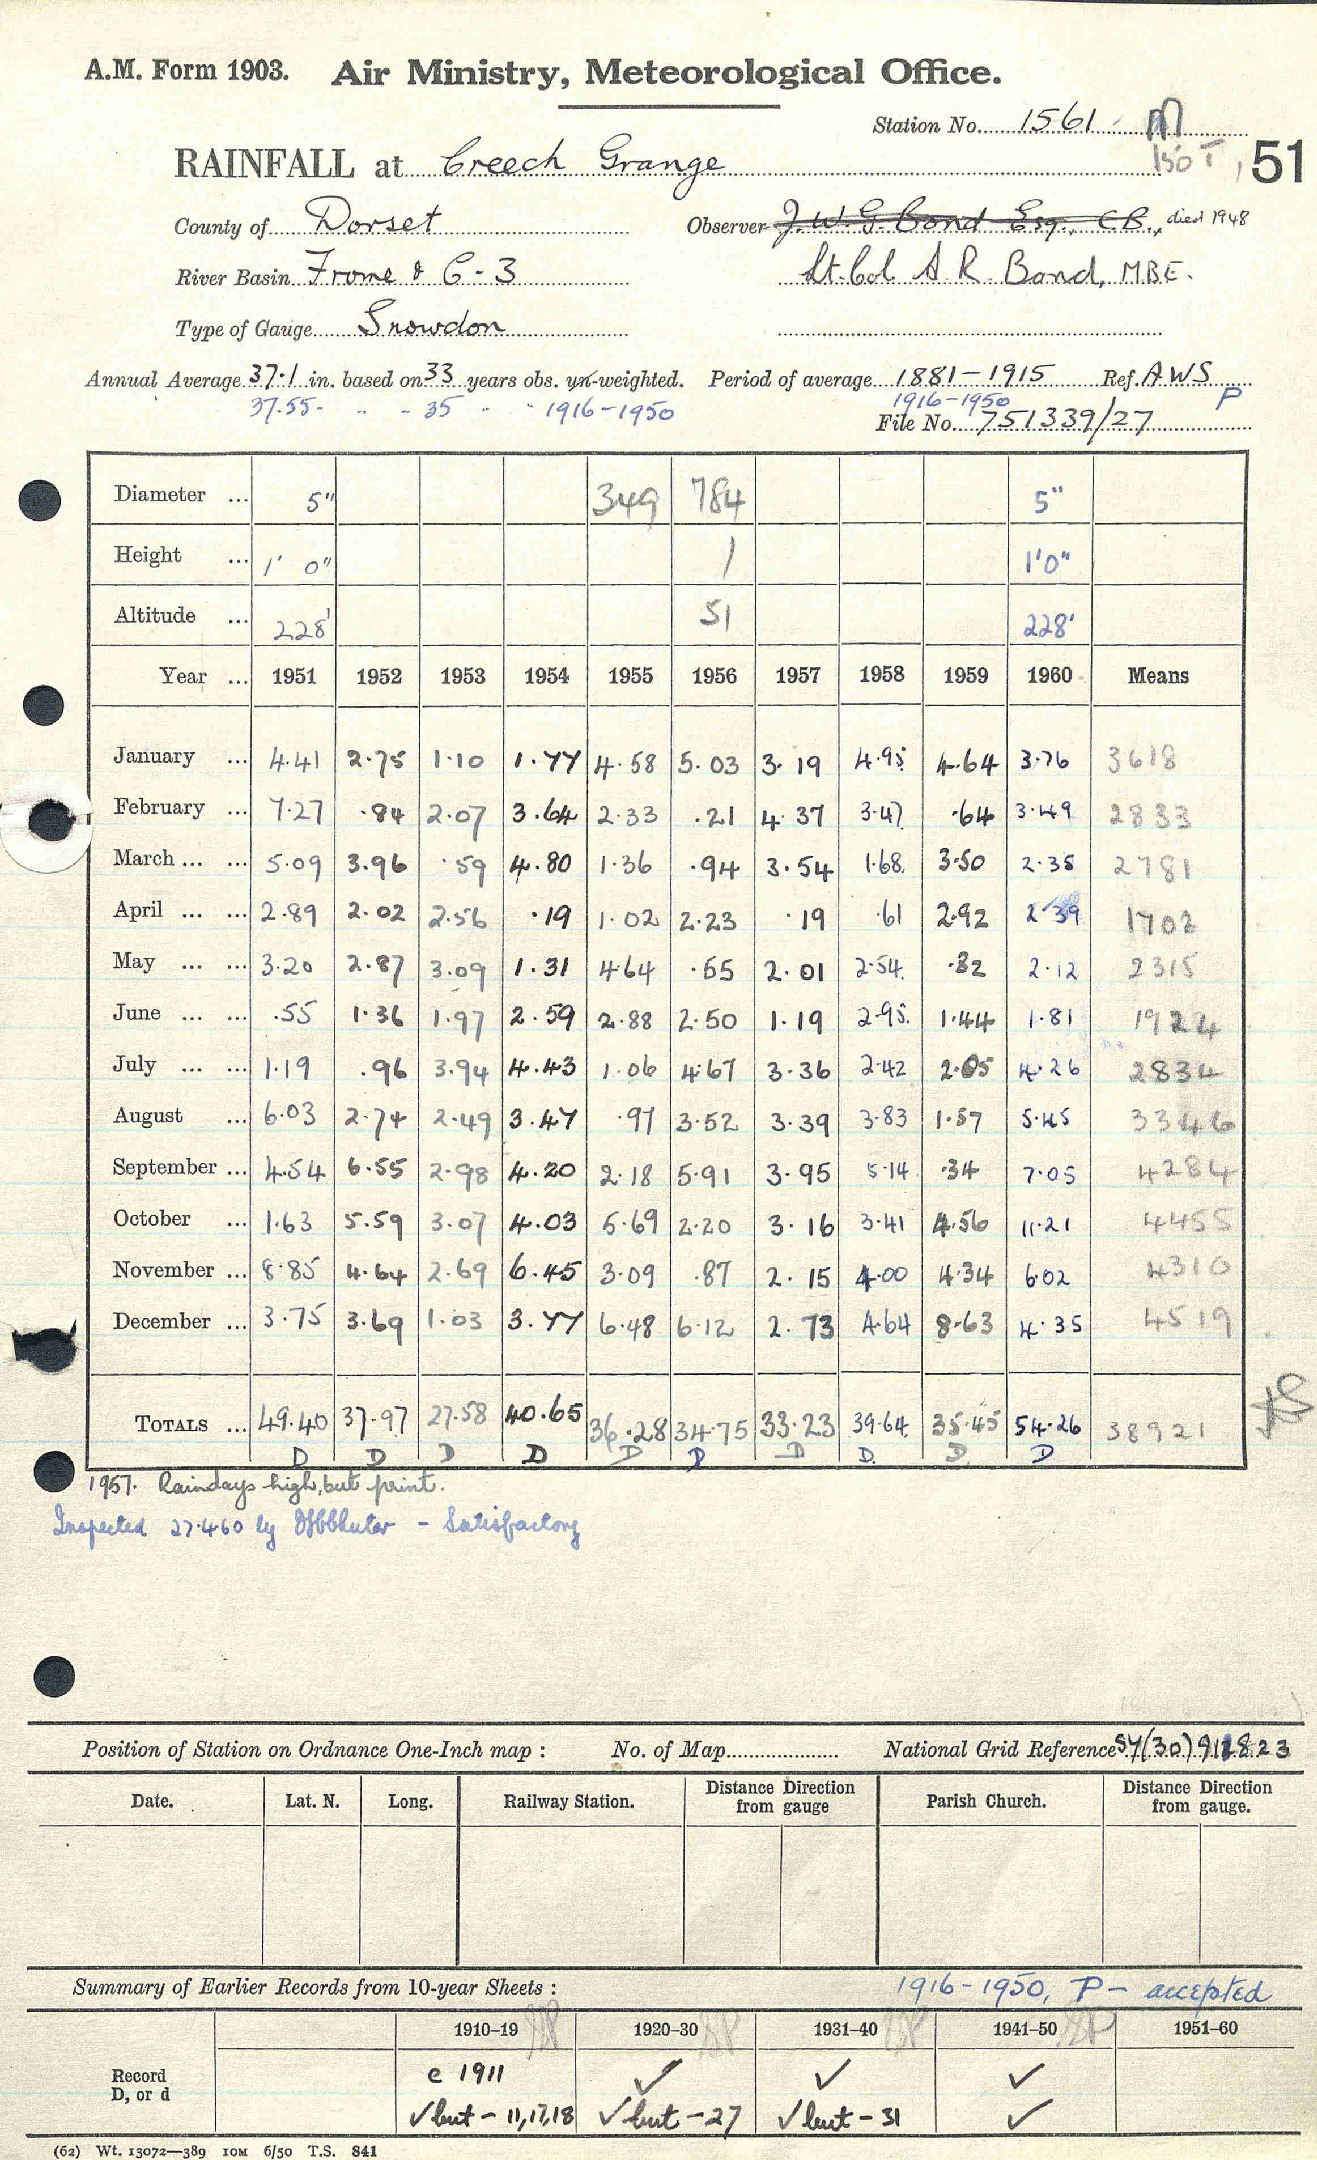 A.M. Form 1903. Air Ministry, Meteorological Office.
Station No. 1561
RAINFALL at Creech Grange 51
County of Dorset Observer J. W. G. Bond Esq., C.B., died 1948
River Basin Frome & C-3 Lt. Col A R. Bond, M.B.E.
Type of Gauge Snowdon
Annual Average 37.1 in. based on 33 years obs. un-weighted. Period of average 1881-1915 Ref. AWS
37.55 - " - 35 " " 1916-1950 1916-1950 P
File No. 751339/27
Diameter ... 5" 349 784 5"
Height ... 1' 0" 1 1'0"
Altitude ... 228' 51 228'
Year ... 1951 1952 1953 1954 1955 1956 1957 1958 1959 1960 Means
January ... 4.41 2.75 1.10 1.77 4.58 5.03 3.19 4.95 4.64 3.76 3618
February ... 7.27 .84 2.07 3.64 2.33 .21 4.37 3.47 .64 3.49 2833
March ... ... 5.09 3.96 .59 4.80 1.36 .94 3.54 1.68 3.50 2.35 2781
April ... ... 2.89 2.02 2.56 .19 1.02 2.23 .19 .61 2.92 2.39 1702
May ... ... 3.20 2.87 3.09 1.31 4.64 .55 2.01 2.54 .82 2.12 2315
June ... ... .55 1.36 1.97 2.59 2.88 2.50 1.19 2.95 1.44 1.81 1924
July ... ... 1.19 .96 3.94 4.43 1.06 4.67 3.36 2.42 2.05 4.26 2834
August ... 6.03 2.74 2.49 3.47 .97 3.52 3.39 3.83 1.57 5.45 3346
September ... 4.54 6.55 2.98 4.20 2.18 5.91 3.95 5.14 .34 7.05 4284
October ... 1.63 5.59 3.07 4.03 5.69 2.20 3.16 3.41 4.56 11.21 4455
November ... 8.85 4.64 2.69 6.45 3.09 .87 2.15 4.00 4.34 6.02 4310
December ... 3.75 3.69 1.03 3.77 6.48 6.12 2.73 4.64 8.63 4.35 4519
TOTALS ... 49.40 37.97 27.58 40.65 36.28 34.75 33.23 39.64 35.45 54.26 38921
D D D D D D D D D D
1957. Raindays high, but print.
Inspected 27.4.60 by - Satisfactory
Position of Station on Ordnance One-Inch map : No. of Map National Grid Reference SY(30)912823
Date. Lat. N. Long. Railway Station. Distance from gauge Direction Parish Church. Distance from gauge. Direction
Summary of Earlier Records from 10-year Sheets : 1916-1950, P- accepted
1910–19 1920–30 1931–40 1941–50 1951–60
Record D, or d c 1911 ✓ ✓ ✓
✓ but - 11,17,18 ✓ but - 27 ✓ but - 31 ✓
(62) Wt. 13072—389 10M 6/50 T.S. 841